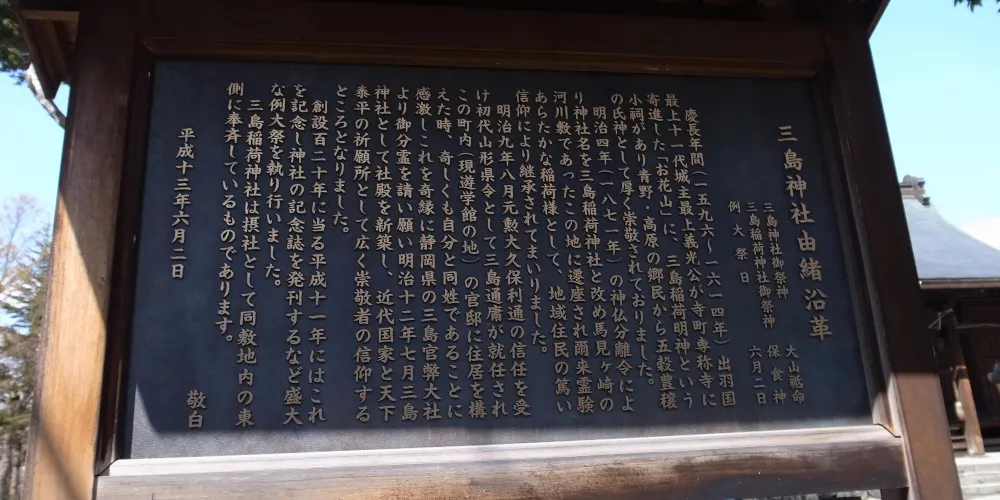 三島神社由緒沿革
三島神社御祭神 大山祗命
三島稲荷神社御祭神 保食神
例大祭日 六月二日
慶長年間(一五九六~一六一四年)出羽国
最上十一代城主最上義光公が寺町専称寺に
寄進した「お花山」に、三島稲荷明神という
小祠があり青野・高原の郷民から五穀豊穣
の氏神として厚く崇敬されておりました。
明治四年(一八七一年)の神仏分離令によ
り神社名を三島稲荷神社と改め馬見ヶ崎の
河川敷であったこの地に遷座され爾来霊験
あらたかな稲荷様として、地域住民の篤い
信仰により継承されてまいりました。
明治九年八月元勲大久保利通の信任を受
け初代山形県令として三島通庸が就任され
この町内(現遊学館の地)の官邸に住居を構
えた時、奇しくも自分と同姓であることに
感激しこれを奇縁に静岡県の三島官弊大社
より御分霊を請い願い明治十二年七月三島
神社として社殿を新築し、近代国家と天下
泰平の祈願所として広く崇敬者の信仰する
ところとなりました。
創設百二十年に当る平成十一年にはこれ
を記念し神社の記念誌を発刊するなど盛大
な例大祭を執り行いました。
三島稲荷神社は摂社として同敷地内の東
側に奉斉しているものであります。
平成十三年六月二日
敬白